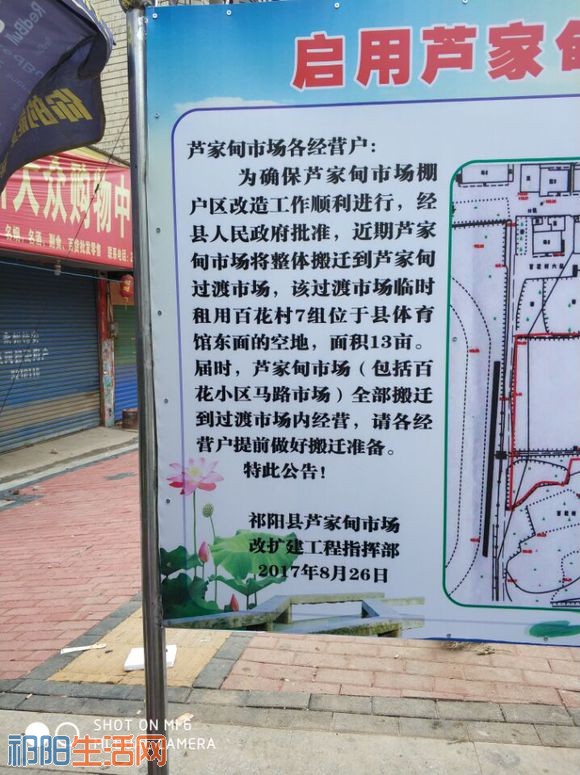 启用芦家甸
芦家甸市场各经营户：
为确保芦家甸市场棚
户区改造工作顺利进行，经
县人民政府批准，近期芦家
甸市场将整体搬迁到芦家甸
过渡市场，该过渡市场临时
租用百花村7组位于县体育
馆东面的空地，面积13亩。
届时，芦家甸市场（包括百
花小区马路市场）全部搬迁
到过渡市场内经营，请各经
营户提前做好搬迁准备。
特此公告！
祁阳县芦家甸市场
改扩建工程指挥部
2017年8月26日
RedBull
你的能
大众购物中
SHOT ON MI 6
CAMERA
祁阳生活网